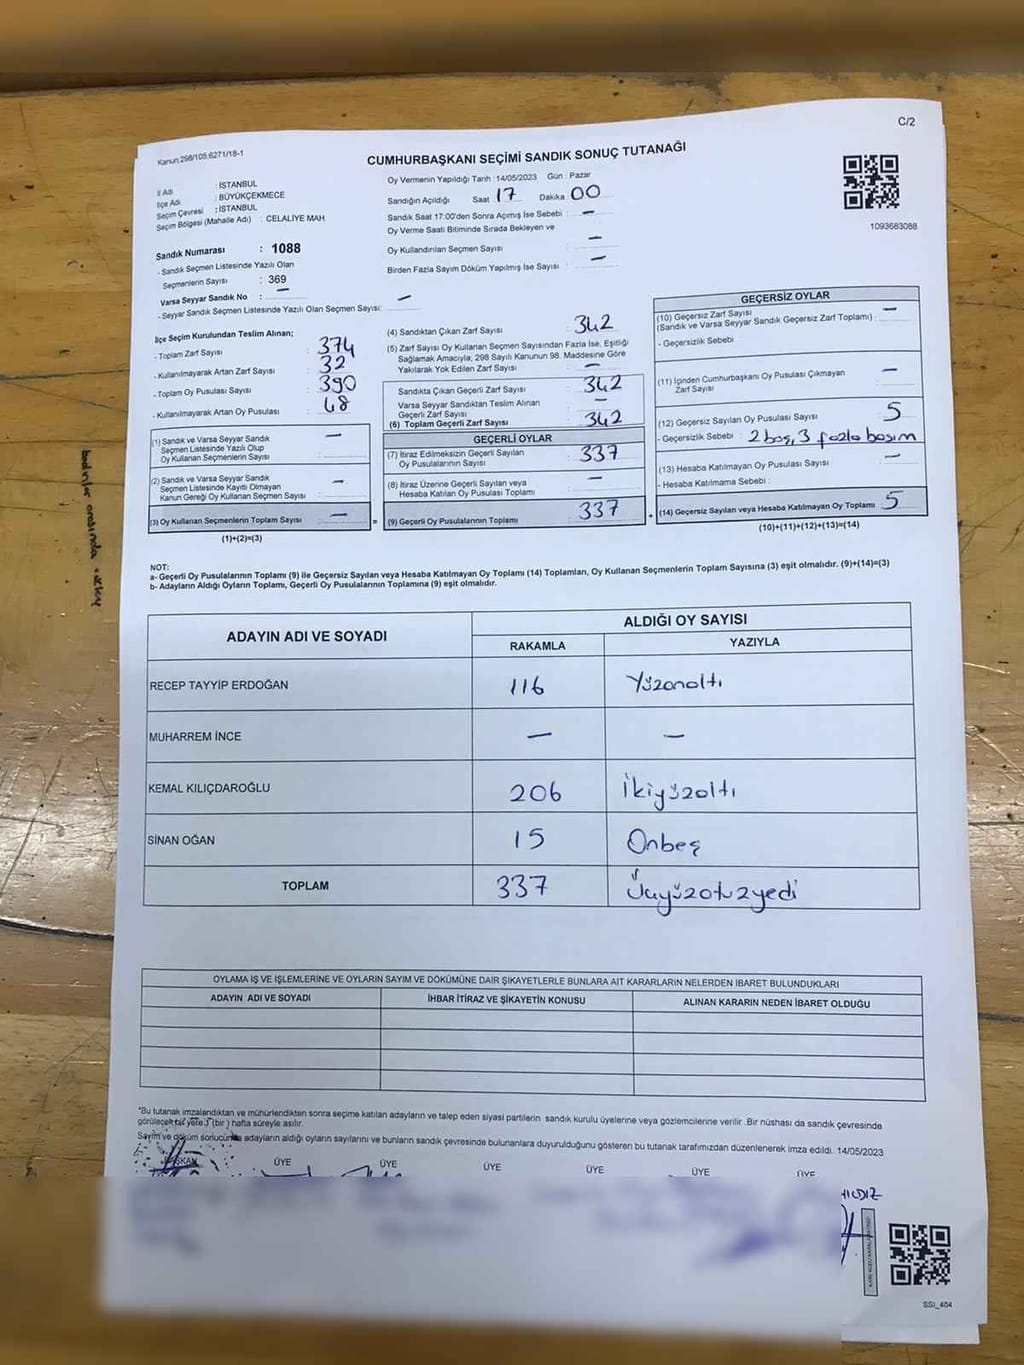 C/2
Kanun:298/105;6271/18-1
CUMHURBAŞKANI SEÇİMİ SANDIK SONUÇ TUTANAĞI
1093683088
İl Adı : İSTANBUL
İlçe Adı : BÜYÜKÇEKMECE
Seçim Çevresi : İSTANBUL
Seçim Bölgesi (Mahalle Adı) : CELALİYE MAH
Sandık Numarası : 1088
- Sandık Seçmen Listesinde Yazılı Olan
Seçmenlerin Sayısı : 369
Varsa Seyyar Sandık No : —
- Seyyar Sandık Seçmen Listesinde Yazılı Olan Seçmen Sayısı: —
Oy Vermenin Yapıldığı Tarih :14/05/2023 Gün : Pazar
Sandığın Açıldığı Saat 17 Dakika 00
Sandık Saat 17:00'den Sonra Açımış İse Sebebi : —
Oy Verme Saati Bitiminde Sırada Bekleyen ve
Oy Kullandırılan Seçmen Sayısı : —
Birden Fazla Sayım Döküm Yapılmış İse Sayısı : —
İlçe Seçim Kurulundan Teslim Alınan;
- Toplam Zarf Sayısı : 374
- Kullanılmayarak Artan Zarf Sayısı : 32
- Toplam Oy Pusulası Sayısı : 390
- Kullanılmayarak Artan Oy Pusulası : 48
(1) Sandık ve Varsa Seyyar Sandık
Seçmen Listesinde Yazılı Olup
Oy Kullanan Seçmenlerin Sayısı : —
(2) Sandık ve Varsa Seyyar Sandık
Seçmen Listesinde Kayıtlı Olmayan
Kanun Gereği Oy Kullanan Seçmen Sayısı : —
(3) Oy Kullanan Seçmenlerin Toplam Sayısı : —
(1)+(2)=(3)
(4) Sandıktan Çıkan Zarf Sayısı : 342
(5) Zarf Sayısı Oy Kullanan Seçmen Sayısından Fazla İse, Eşitliği
Sağlamak Amacıyla; 298 Sayılı Kanunun 98. Maddesine Göre
Yakılarak Yok Edilen Zarf Sayısı : —
Sandıkta Çıkan Geçerli Zarf Sayısı : 342
Varsa Seyyar Sandıktan Teslim Alınan
Geçerli Zarf Sayısı : —
(6) Toplam Geçerli Zarf Sayısı : 342
GEÇERLİ OYLAR
(7) İtiraz Edilmeksizin Geçerli Sayılan
Oy Pusulalarının Sayısı : 337
(8) İtiraz Üzerine Geçerli Sayılan veya
Hesaba Katılan Oy Pusulası Toplamı : —
= (9) Geçerli Oy Pusulalarının Toplamı : 337
GEÇERSİZ OYLAR
(10) Geçersiz Zarf Sayısı
(Sandık ve Varsa Seyyar Sandık Geçersiz Zarf Toplamı) : —
- Geçersizlik Sebebi
(11) İçinden Cumhurbaşkanı Oy Pusulası Çıkmayan
Zarf Sayısı : —
(12) Geçersiz Sayılan Oy Pusulası Sayısı : 5
- Geçersizlik Sebebi : 2 boş, 3 fazla basım
(13) Hesaba Katılmayan Oy Pusulası Sayısı : —
- Hesaba Katılmama Sebebi :
+ (14) Geçersiz Sayılan veya Hesaba Katılmayan Oy Toplamı : 5
(10)+(11)+(12)+(13)=(14)
NOT:
a- Geçerli Oy Pusulalarının Toplamı (9) ile Geçersiz Sayılan veya Hesaba Katılmayan Oy Toplamı (14) Toplamları, Oy Kullanan Seçmenlerin Toplam Sayısına (3) eşit olmalıdır. (9)+(14)=(3)
b- Adayların Aldığı Oyların Toplamı, Geçerli Oy Pusulalarının Toplamına (9) eşit olmalıdır.
ADAYIN ADI VE SOYADI
ALDIĞI OY SAYISI
RAKAMLA YAZIYLA
RECEP TAYYİP ERDOĞAN 116 Yüzonaltı
MUHARREM İNCE — —
KEMAL KILIÇDAROĞLU 206 İkiyüzaltı
SİNAN OĞAN 15 Onbeş
TOPLAM 337 Üçyüzotuzyedi
OYLAMA İŞ VE İŞLEMLERİNE VE OYLARIN SAYIM VE DÖKÜMÜNE DAİR ŞİKAYETLERLE BUNLARA AİT KARARLARIN NELERDEN İBARET BULUNDUKLARI
ADAYIN ADI VE SOYADI İHBAR İTİRAZ VE ŞİKAYETİN KONUSU ALINAN KARARIN NEDEN İBARET OLDUĞU
*Bu tutanak imzalandıktan ve mühürlendikten sonra seçime katılan adayların ve talep eden siyasi partilerin sandık kurulu üyelerine veya gözlemcilerine verilir .Bir nüshası da sandık çevresinde
görülecek bir yere 1 (bir ) hafta süreyle asılır.
Sayım ve döküm sonucunda adayların aldığı oyların sayılarını ve bunların sandık çevresinde bulunanlara duyurulduğunu gösteren bu tutanak tarafımızdan düzenlenerek imza edildi. 14/05/2023
BAŞKAN ÜYE ÜYE ÜYE ÜYE ÜYE ÜYE
SSI_404